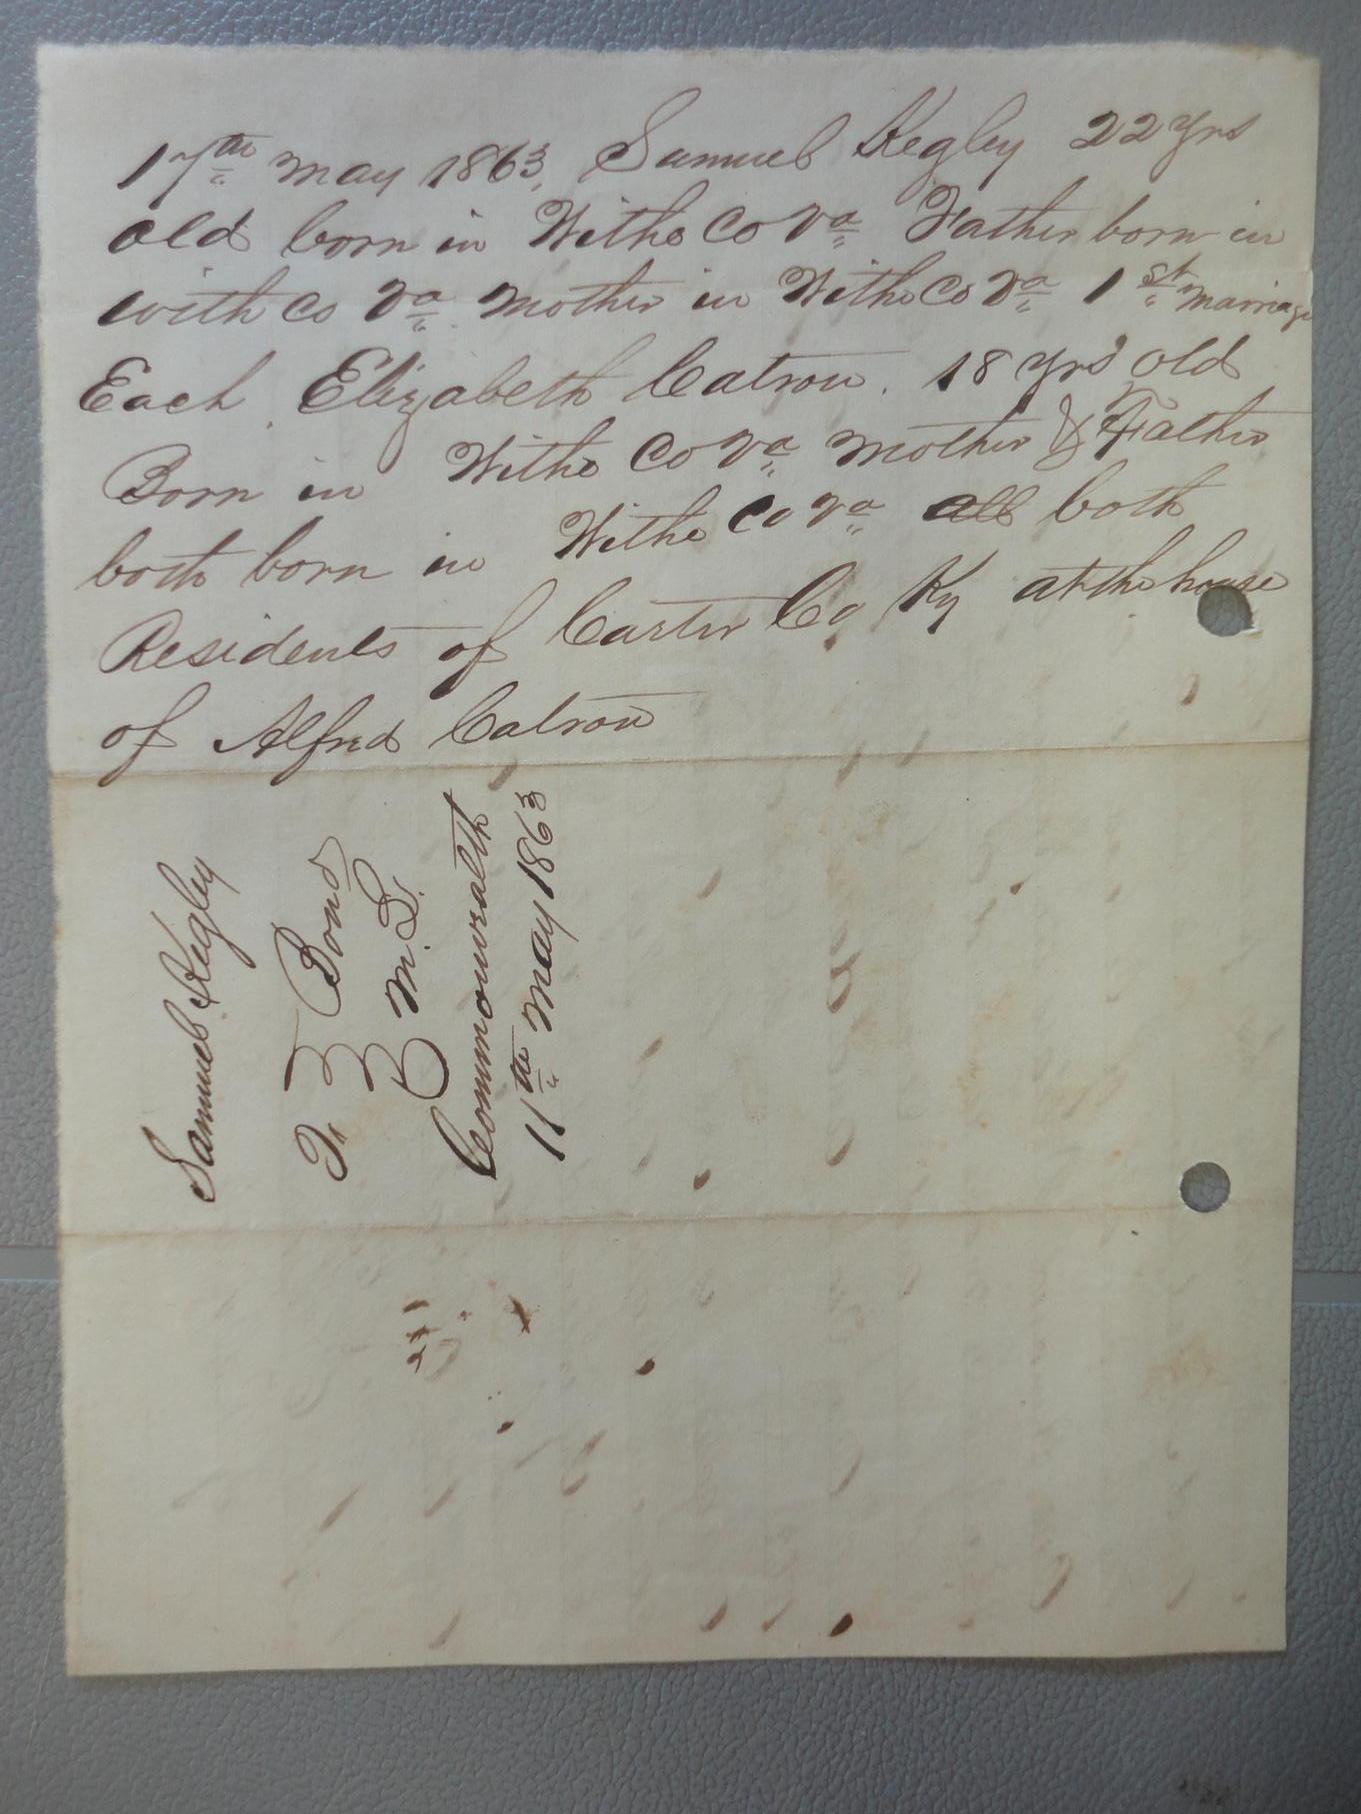 17th may 1863, Samuel Kegley 22 yrs
old born in Withe Co Va Father born in
with Co Va. Mother in Withe Co Va 1st marriage
Each. Elizabeth Catron. 18 yrs old
Born in Withe Co Va Mother & Father
both born in Withe Co Va all both
Residents of Carter Co Ky at the house
of Alfred Catron
Samuel Kegley
To Bond
M. L.
Commonwealth
11th May 1863